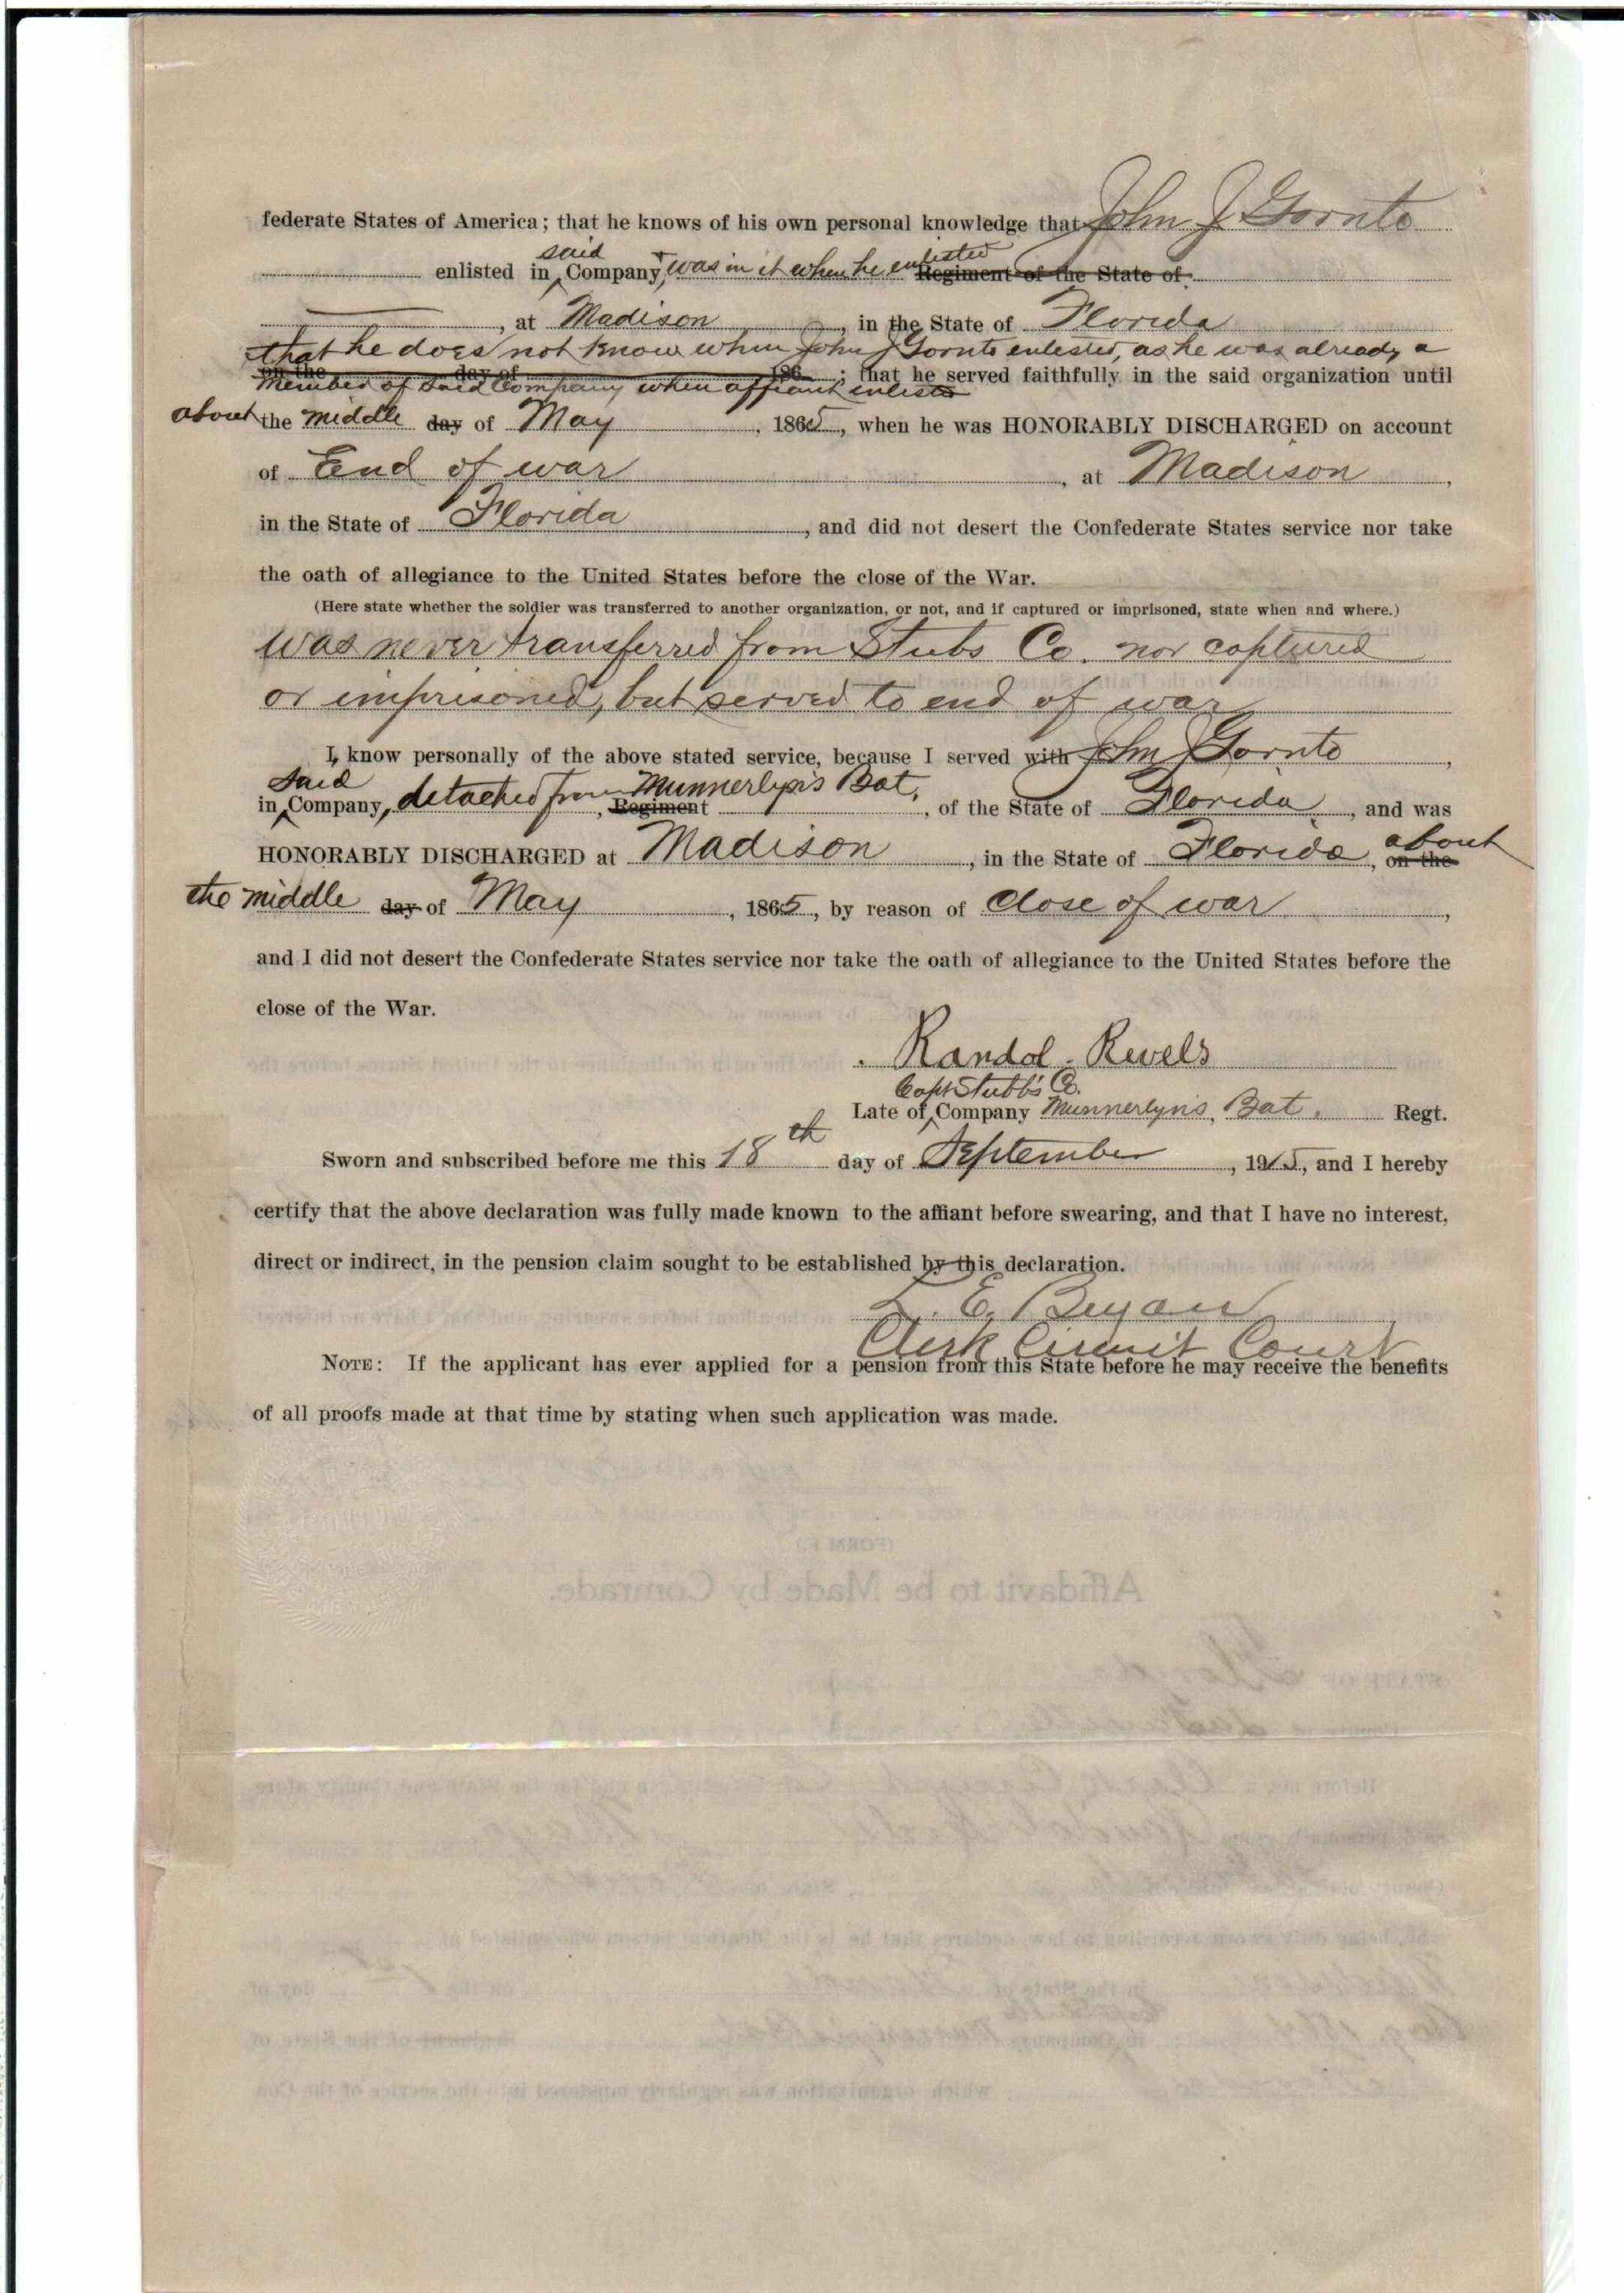 federate States of America; that he knows of his own personal knowledge that John J Gornto
said
enlisted in Company, & was in it when he enlisted Regiment of the State of
, at Madison, in the State of Florida
that he does not know when John J Gornto enlisted, as he was already a
on the day of 186 ; that he served faithfully in the said organization until
member of said Company when affiant enlisted
about the middle day of May, 1865, when he was HONORABLY DISCHARGED on account
of End of war, at Madison,
in the State of Florida, and did not desert the Confederate States service nor take
the oath of allegiance to the United States before the close of the War.
(Here state whether the soldier was transferred to another organization, or not, and if captured or imprisoned, state when and where.)
was never transferred from Stubs Co. nor captured
or imprisoned, but served to end of war
I, know personally of the above stated service, because I served with John J Gornto,
said
in Company, detached from Munnerlyn's Bat, Regiment, of the State of Florida, and was
HONORABLY DISCHARGED at Madison, in the State of Florida, about on the
the middle day of May, 1865, by reason of close of war,
and I did not desert the Confederate States service nor take the oath of allegiance to the United States before the
close of the War.
Randol Revels
Capt Stubb's Co.
Late of Company Munnerlyn's, Bat. Regt.
Sworn and subscribed before me this 18th day of September, 1915, and I hereby
certify that the above declaration was fully made known to the affiant before swearing, and that I have no interest,
direct or indirect, in the pension claim sought to be established by this declaration.
L. E. Bryan
Clerk Circuit Court
NOTE: If the applicant has ever applied for a pension from this State before he may receive the benefits
of all proofs made at that time by stating when such application was made.